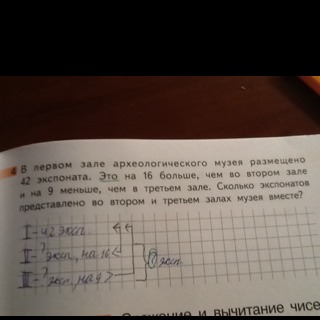 4 В первом зале археологического музея размещено
42 экспоната. Это на 16 больше, чем во втором зале
и на 9 меньше, чем в третьем зале. Сколько экспонатов
представлено во втором и третьем залах музея вместе?
I - 42 эксп.
II - ? эксп., на 16 <
? эксп.
III - ? эксп., на 9 >
и вычитание чисе